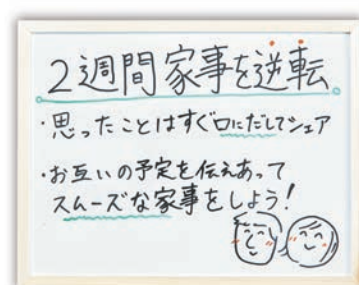 2週間家事を逆転
・思ったことはすぐ口にだしてシェア
・お互いの予定を伝えあって
スムーズな家事をしよう!